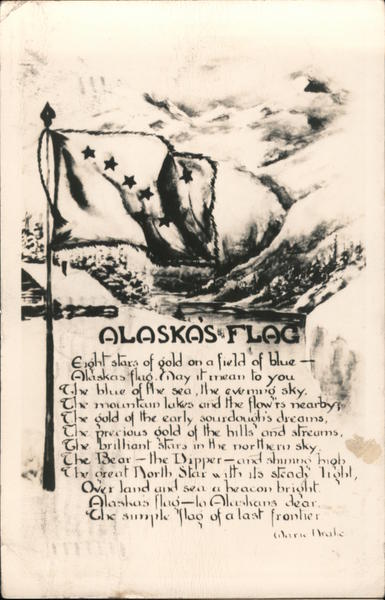 ALASKA'S FLAG
Eight stars of gold on a field of blue —
Alaskas flag. May it mean to you
The blue of the sea, the evening sky,
The mountain lakes and the flow'rs nearby;
The gold of the early sourdough's dreams,
The precious gold of the hills and streams,
The brilliant stars in the northern sky,
The Bear — the Dipper — and shining high
The great North Star with its steady light,
Over land and sea a beacon bright.
Alaska's flag — to Alaskans dear,
The simple flag of a last frontier
Marie Drake